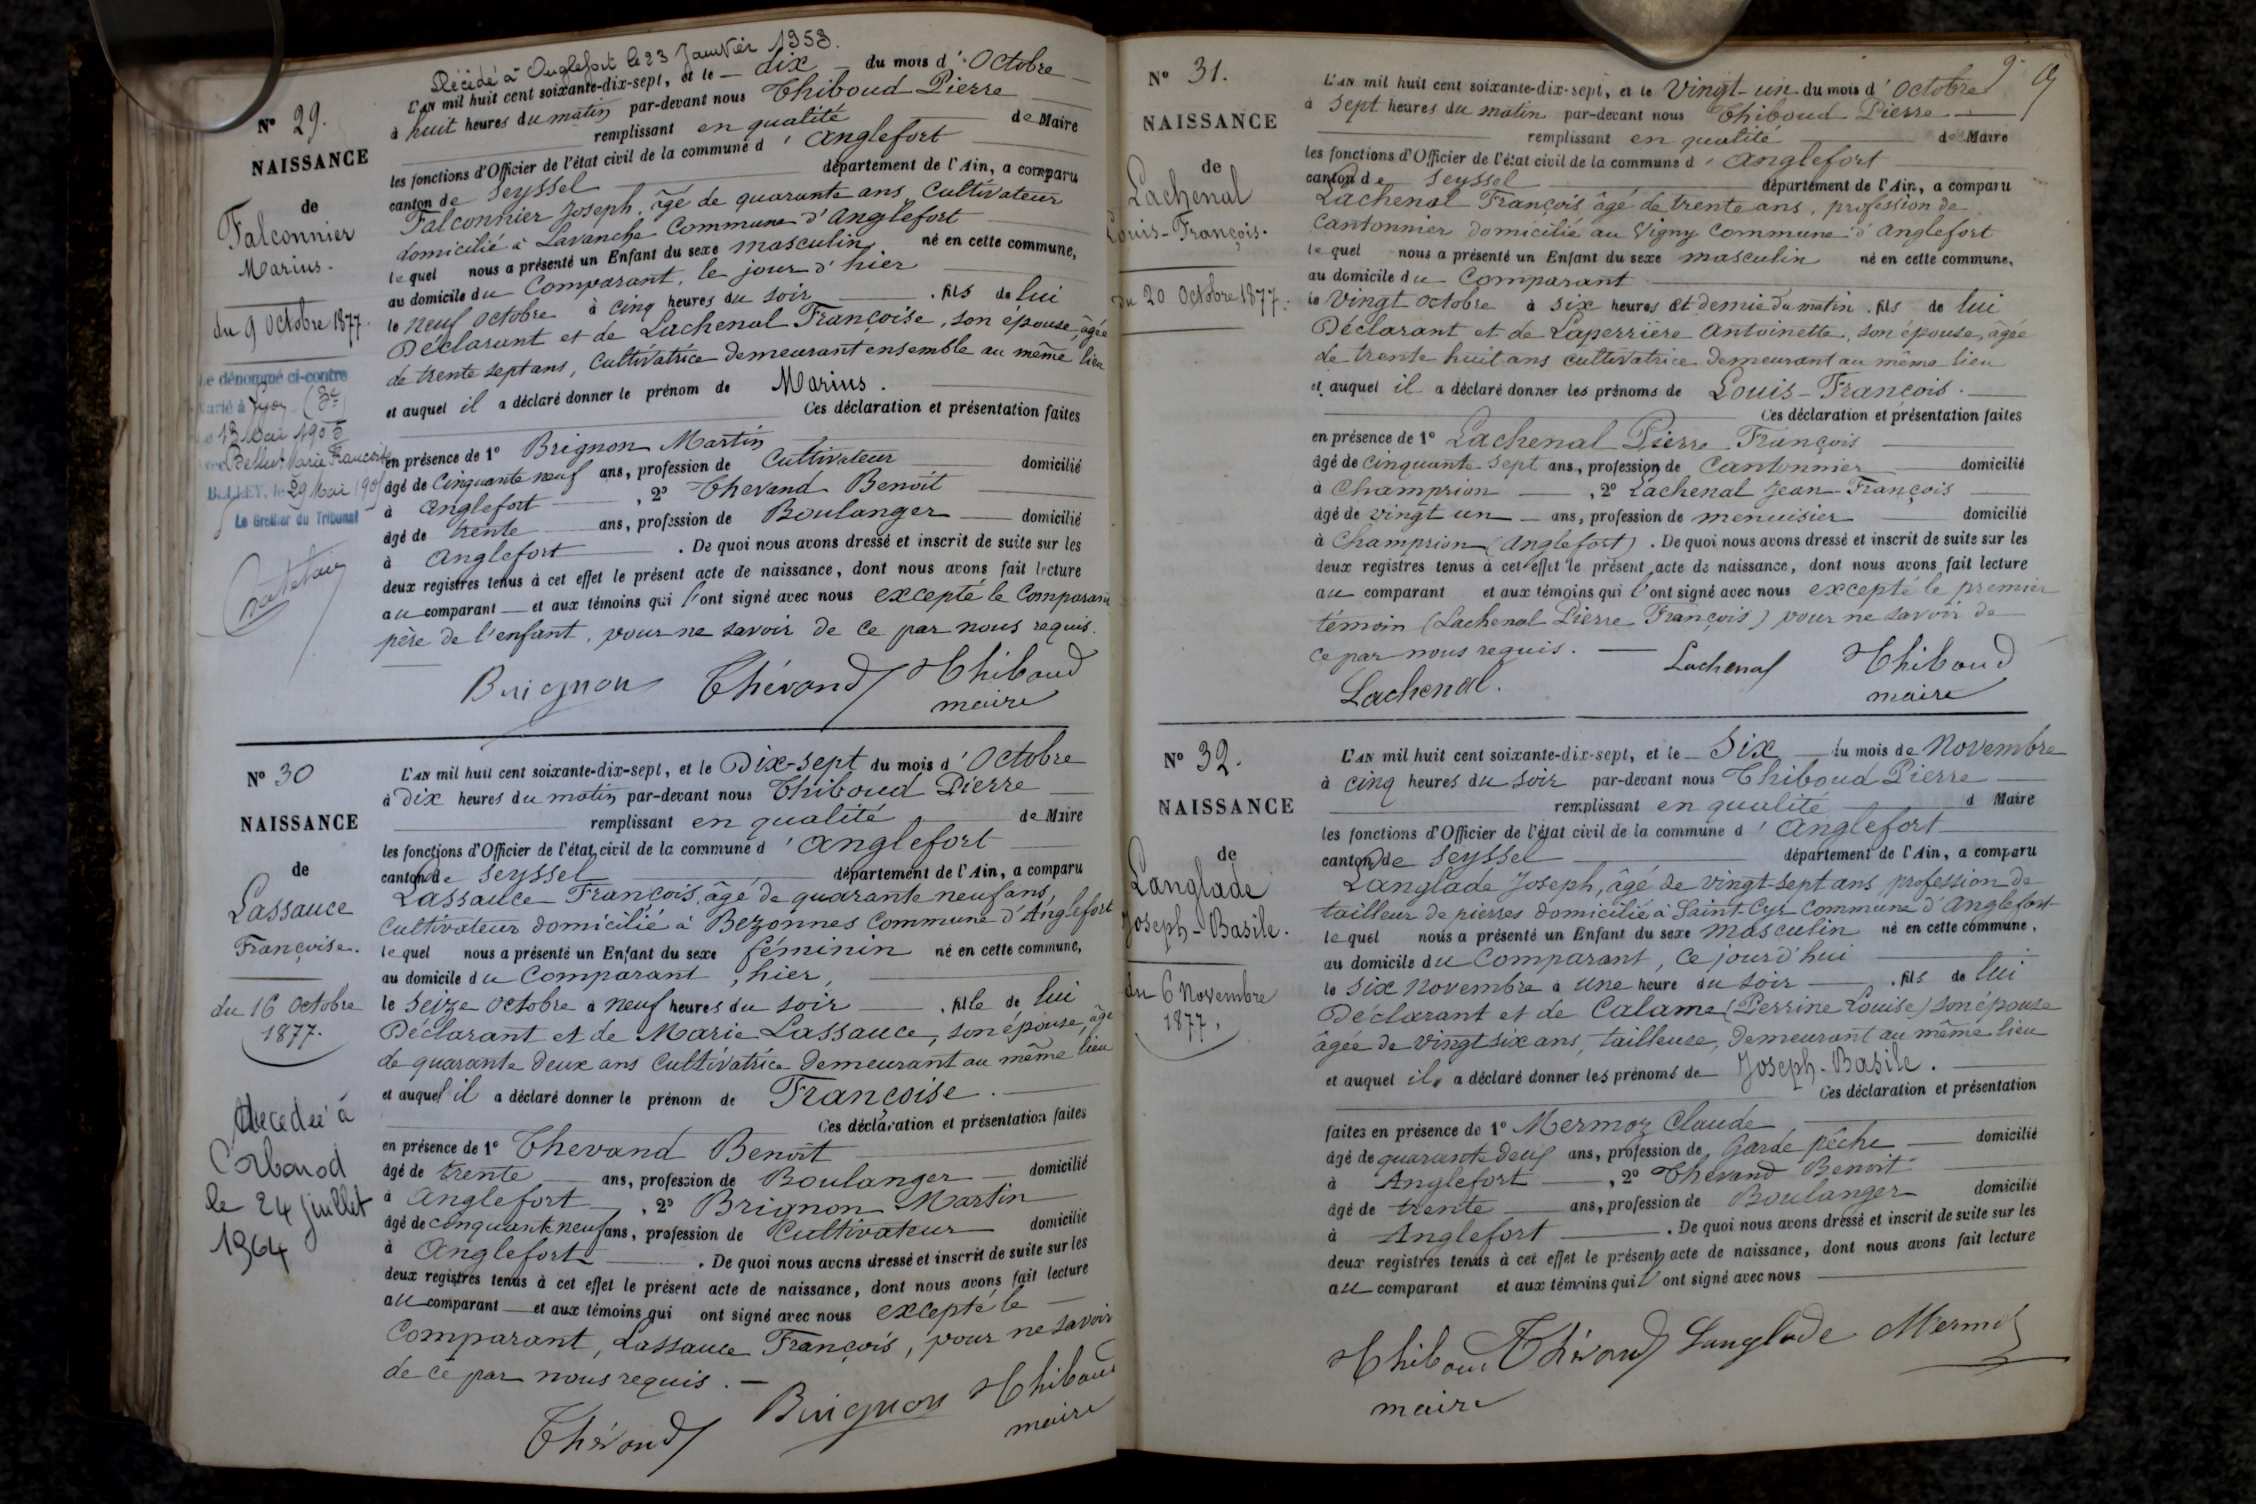 Décédé à Anglefort le 23 Janvier 1953.
N° 29.
NAISSANCE
de
Falconnier
Marius.
du 9 Octobre 1877.
Le dénommé ci-contre
Marié à Lyon (3e)
29 Mai
Le Greffier du Tribunal
L'AN mil huit cent soixante-dix-sept, et le dix du mois d'Octobre
à huit heures du matin par-devant nous Thiboud Pierre
remplissant en qualité de Maire
les fonctions d'Officier de l'état civil de la commune d'Anglefort
canton de Seyssel département de l'Ain, a comparu
Falconnier Joseph, âgé de quarante ans, Cultivateur
domicilié à Lavanche Commune d'Anglefort
lequel nous a présenté un Enfant du sexe masculin, né en cette commune,
au domicile du Comparant, le jour d'hier
le neuf octobre à cinq heures du soir, fils de lui
Déclarant et de Lachenal Françoise, son épouse, âgée
de trente sept ans, Cultivatrice demeurant ensemble au même lieu
et auquel il a déclaré donner le prénom de Marius.
Ces déclaration et présentation faites
en présence de 1° Brignon Martin
âgé de Cinquante neuf ans, profession de Cultivateur domicilié
à Anglefort, 2° Thevand Benoît
âgé de trente ans, profession de Boulanger domicilié
à Anglefort. De quoi nous avons dressé et inscrit de suite sur les
deux registres tenus à cet effet le présent acte de naissance, dont nous avons fait lecture
au comparant et aux témoins qui l'ont signé avec nous excepté le Comparant
père de l'enfant, pour ne savoir de ce par nous requis.
Brignon Thévand Thiboud
maire
N° 30
NAISSANCE
de
Lassauce
Françoise.
du 16 Octobre
1877.
décédée à
Corbonod
le 24 juillet
1964
L'AN mil huit cent soixante-dix-sept, et le Dix-sept du mois d'Octobre
à Dix heures du matin par-devant nous Thiboud Pierre
remplissant en qualité de Maire
les fonctions d'Officier de l'état civil de la commune d'Anglefort
canton de Seyssel département de l'Ain, a comparu
Lassauce François, âgé de quarante neuf ans,
Cultivateur domicilié à Bezonnes Commune d'Anglefort
lequel nous a présenté un Enfant du sexe féminin né en cette commune,
au domicile du Comparant, hier,
le seize octobre à neuf heures du soir, fille de lui
Déclarant et de Marie Lassauce, son épouse, âgée
de quarante deux ans Cultivatrice demeurant au même lieu
et auquel il a déclaré donner le prénom de Françoise.
Ces déclaration et présentation faites
en présence de 1° Thevand Benoît
âgé de trente ans, profession de Boulanger domicilié
à Anglefort, 2° Brignon Martin
âgé de cinquante neuf ans, profession de Cultivateur domicilié
à Anglefort. De quoi nous avons dressé et inscrit de suite sur les
deux registres tenus à cet effet le présent acte de naissance, dont nous avons fait lecture
au comparant et aux témoins qui ont signé avec nous excepté le
Comparant, Lassauce François, pour ne savoir
de ce par nous requis.
Thévand Brignon Thiboud
maire
9
N° 31.
NAISSANCE
de
Lachenal
Louis-François.
du 20 Octobre 1877.
L'AN mil huit cent soixante-dix-sept, et le Vingt-un du mois d'Octobre
à sept heures du matin par-devant nous Thiboud Pierre
remplissant en qualité de Maire
les fonctions d'Officier de l'état civil de la commune d'Anglefort
canton de Seyssel département de l'Ain, a comparu
Lachenal François âgé de trente ans, profession de
Cantonnier domicilié au Vigny Commune d'Anglefort
lequel nous a présenté un Enfant du sexe masculin né en cette commune,
au domicile du Comparant
le Vingt octobre à six heures et demie du matin, fils de lui
Déclarant et de Laperrière Antoinette, son épouse, âgée
de trente huit ans cultivatrice demeurant au même lieu
et auquel il a déclaré donner les prénoms de Louis-François.
Ces déclaration et présentation faites
en présence de 1° Lachenal Pierre François
âgé de cinquante sept ans, profession de Cantonnier domicilié
à Champrion, 2° Lachenal Jean-François
âgé de vingt un ans, profession de menuisier domicilié
à Champrion (Anglefort). De quoi nous avons dressé et inscrit de suite sur les
deux registres tenus à cet effet le présent acte de naissance, dont nous avons fait lecture
au comparant et aux témoins qui l'ont signé avec nous excepté le premier
témoin (Lachenal Pierre François) pour ne savoir de
ce par nous requis.
Lachenal Thiboud
Lachenal. maire
N° 32.
NAISSANCE
de
Langlade
Joseph-Basile.
du 6 Novembre
1877.
L'AN mil huit cent soixante-dix-sept, et le Six du mois de Novembre
à cinq heures du soir par-devant nous Thiboud Pierre
remplissant en qualité d Maire
les fonctions d'Officier de l'état civil de la commune d'Anglefort
canton de Seyssel département de l'Ain, a comparu
Langlade Joseph, âgé de vingt-sept ans profession de
tailleur de pierres domicilié à Saint-Cyr Commune d'Anglefort
lequel nous a présenté un Enfant du sexe masculin né en cette commune,
au domicile du Comparant, ce jourd'hui
le six novembre à une heure du soir, fils de lui
Déclarant et de Calame (Perrine Louise) son épouse
âgée de vingt six ans, tailleuse, demeurant au même lieu
et auquel il a déclaré donner les prénoms de Joseph-Basile.
Ces déclaration et présentation
faites en présence de 1° Mermoz Claude
âgé de quarante deux ans, profession de Garde pêche domicilié
à Anglefort, 2° Thevand Benoît
âgé de trente ans, profession de Boulanger domicilié
à Anglefort. De quoi nous avons dressé et inscrit de suite sur les
deux registres tenus à cet effet le présent acte de naissance, dont nous avons fait lecture
au comparant et aux témoins qui l'ont signé avec nous
Thiboud Thévand Langlade Mermoz
maire